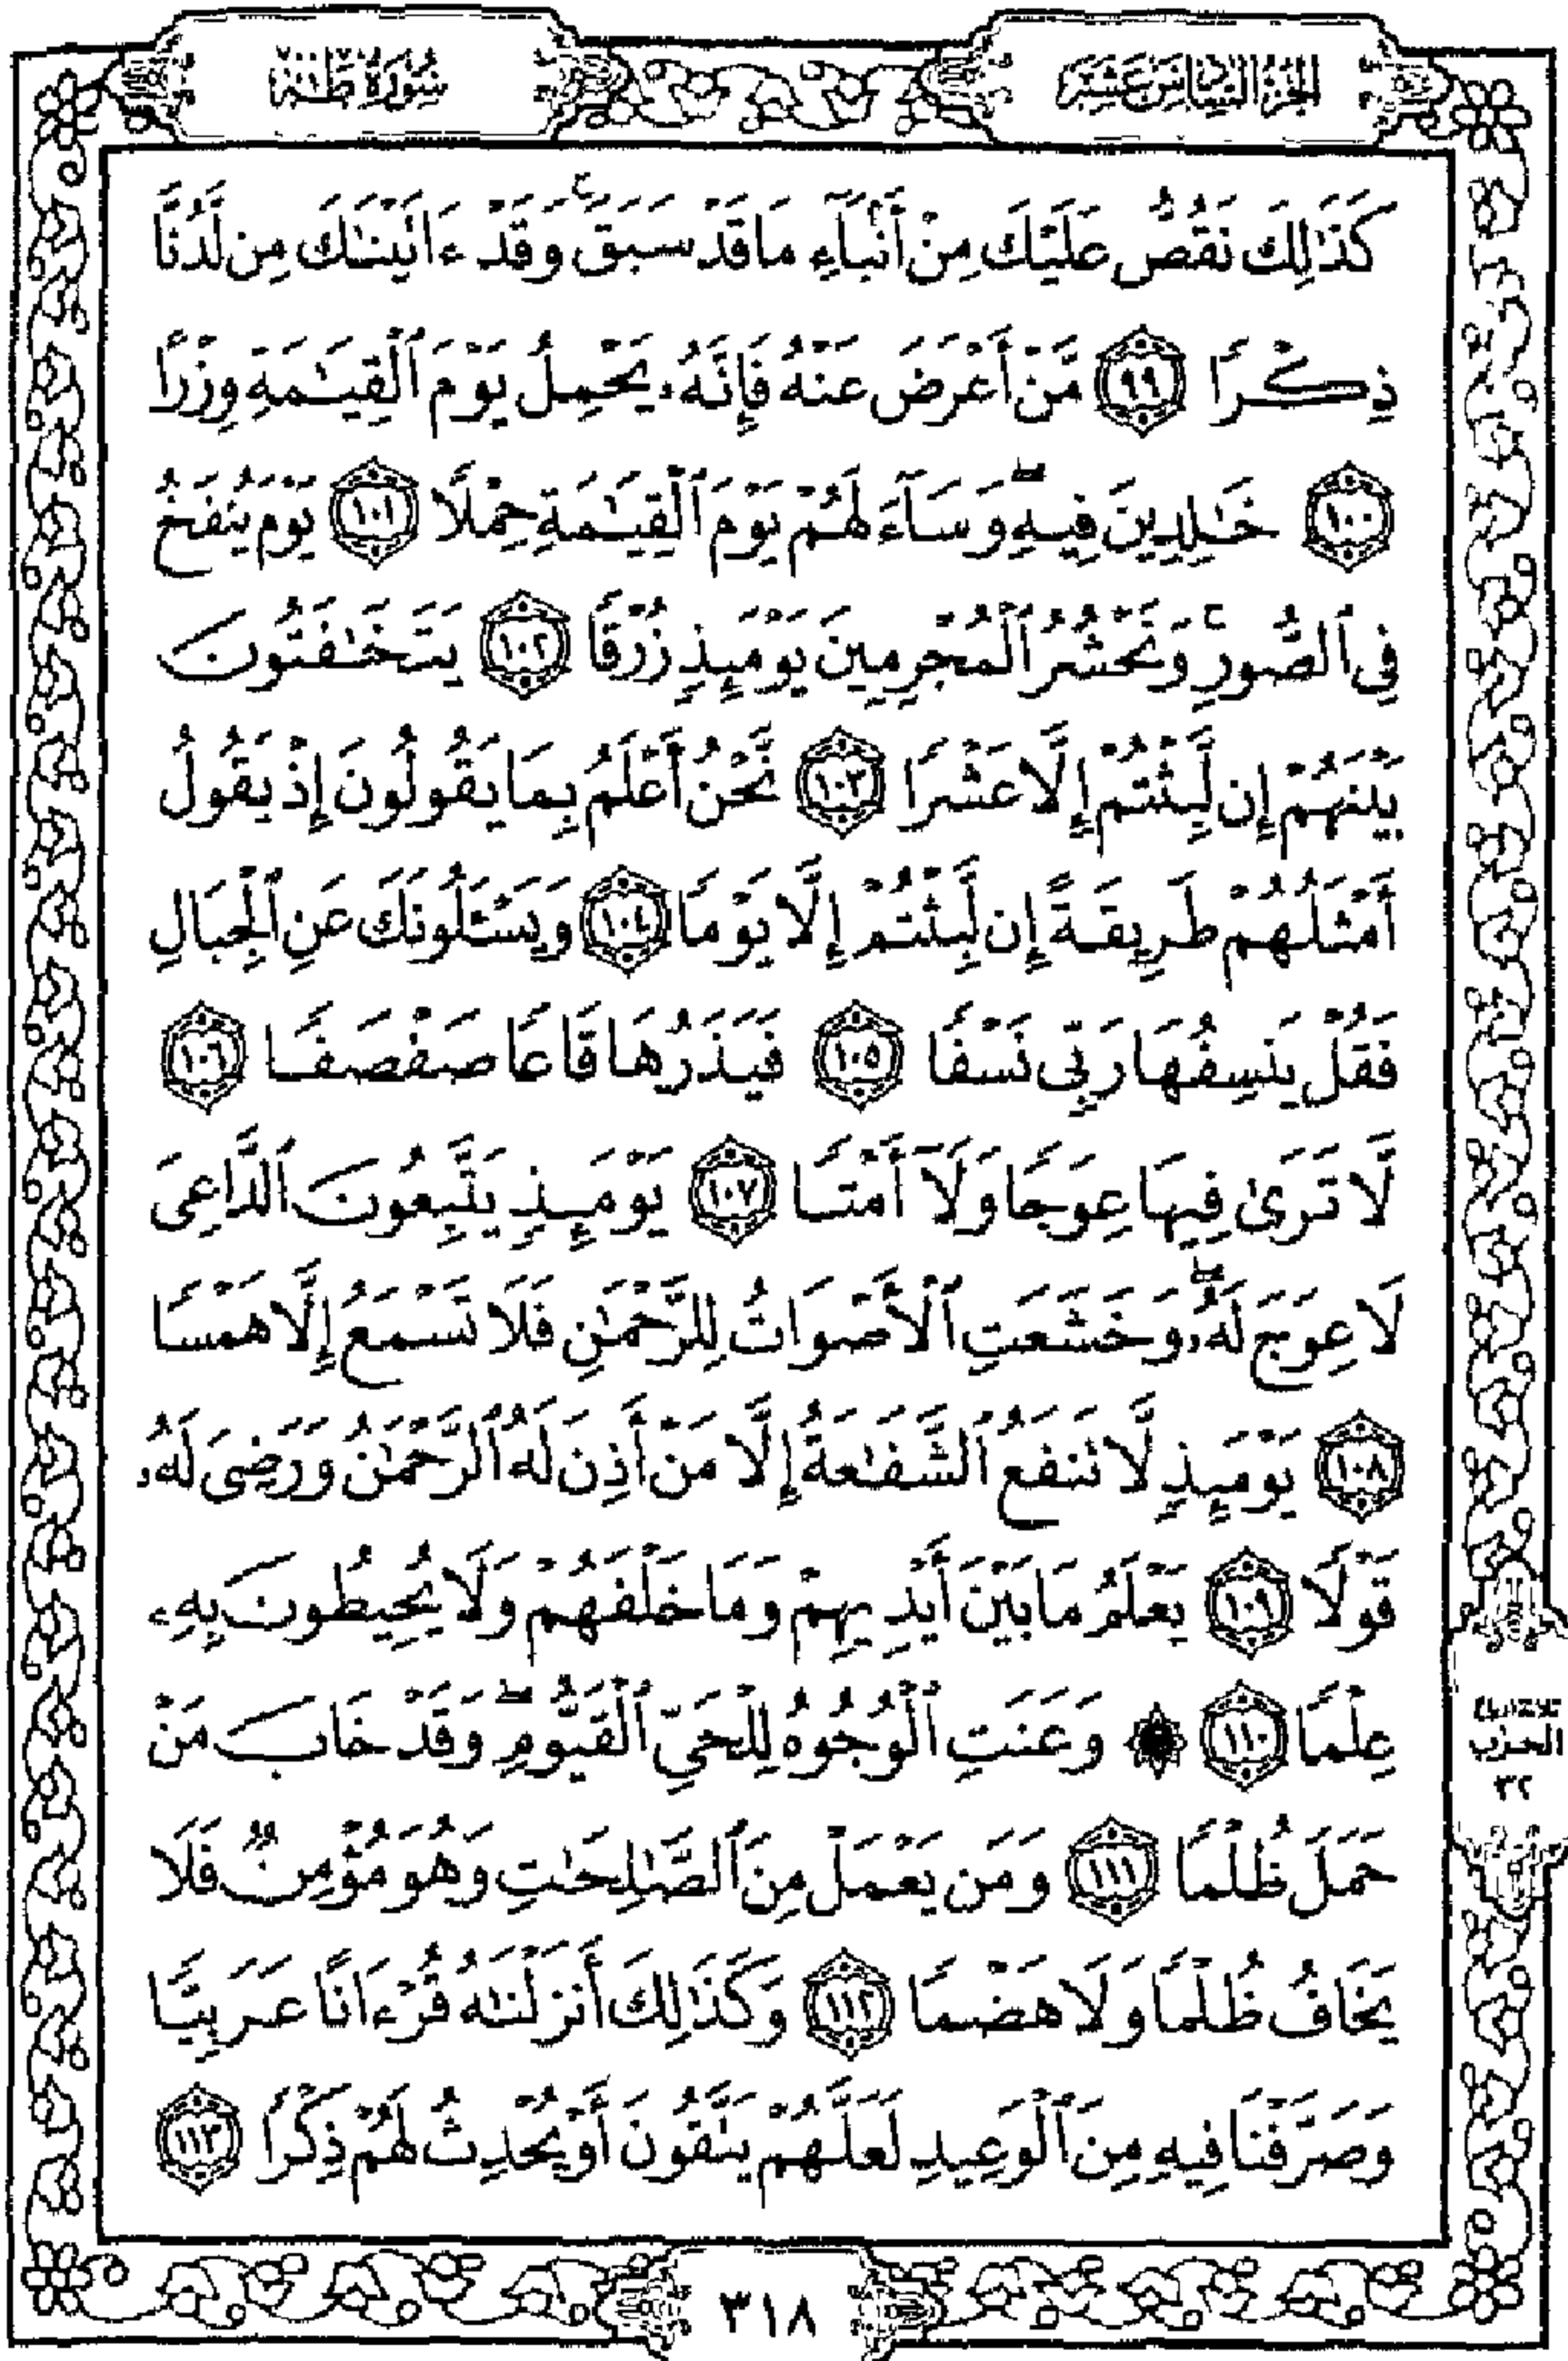 الجزء السادس عشر
سورة طه
كَذَٰلِكَ نَقُصُّ عَلَيْكَ مِنْ أَنۢبَآءِ مَا قَدْ سَبَقَ ۚ وَقَدْ ءَاتَيْنَٰكَ مِن لَّدُنَّا
ذِكْرًا ٩٩ مَّنْ أَعْرَضَ عَنْهُ فَإِنَّهُۥ يَحْمِلُ يَوْمَ ٱلْقِيَٰمَةِ وِزْرًا
١٠٠ خَٰلِدِينَ فِيهِ ۖ وَسَآءَ لَهُمْ يَوْمَ ٱلْقِيَٰمَةِ حِمْلًا ١٠١ يَوْمَ يُنفَخُ
فِى ٱلصُّورِ ۚ وَنَحْشُرُ ٱلْمُجْرِمِينَ يَوْمَئِذٍ زُرْقًا ١٠٢ يَتَخَٰفَتُونَ
بَيْنَهُمْ إِن لَّبِثْتُمْ إِلَّا عَشْرًا ١٠٣ نَّحْنُ أَعْلَمُ بِمَا يَقُولُونَ إِذْ يَقُولُ
أَمْثَلُهُمْ طَرِيقَةً إِن لَّبِثْتُمْ إِلَّا يَوْمًا ١٠٤ وَيَسْـَٔلُونَكَ عَنِ ٱلْجِبَالِ
فَقُلْ يَنسِفُهَا رَبِّى نَسْفًا ١٠٥ فَيَذَرُهَا قَاعًا صَفْصَفًا ١٠٦
لَّا تَرَىٰ فِيهَا عِوَجًا وَلَآ أَمْتًا ١٠٧ يَوْمَئِذٍ يَتَّبِعُونَ ٱلدَّاعِىَ
لَا عِوَجَ لَهُۥ ۖ وَخَشَعَتِ ٱلْأَصْوَاتُ لِلرَّحْمَٰنِ فَلَا تَسْمَعُ إِلَّا هَمْسًا
١٠٨ يَوْمَئِذٍ لَّا تَنفَعُ ٱلشَّفَٰعَةُ إِلَّا مَنْ أَذِنَ لَهُ ٱلرَّحْمَٰنُ وَرَضِىَ لَهُۥ
قَوْلًا ١٠٩ يَعْلَمُ مَا بَيْنَ أَيْدِيهِمْ وَمَا خَلْفَهُمْ وَلَا يُحِيطُونَ بِهِۦ
عِلْمًا ١١٠ ۞ وَعَنَتِ ٱلْوُجُوهُ لِلْحَىِّ ٱلْقَيُّومِ ۖ وَقَدْ خَابَ مَنْ
حَمَلَ ظُلْمًا ١١١ وَمَن يَعْمَلْ مِنَ ٱلصَّٰلِحَٰتِ وَهُوَ مُؤْمِنٌ فَلَا
يَخَافُ ظُلْمًا وَلَا هَضْمًا ١١٢ وَكَذَٰلِكَ أَنزَلْنَٰهُ قُرْءَانًا عَرَبِيًّا
وَصَرَّفْنَا فِيهِ مِنَ ٱلْوَعِيدِ لَعَلَّهُمْ يَتَّقُونَ أَوْ يُحْدِثُ لَهُمْ ذِكْرًا ١١٣
ثلاثة أرباع
الحزب
٣٢
٣١٨